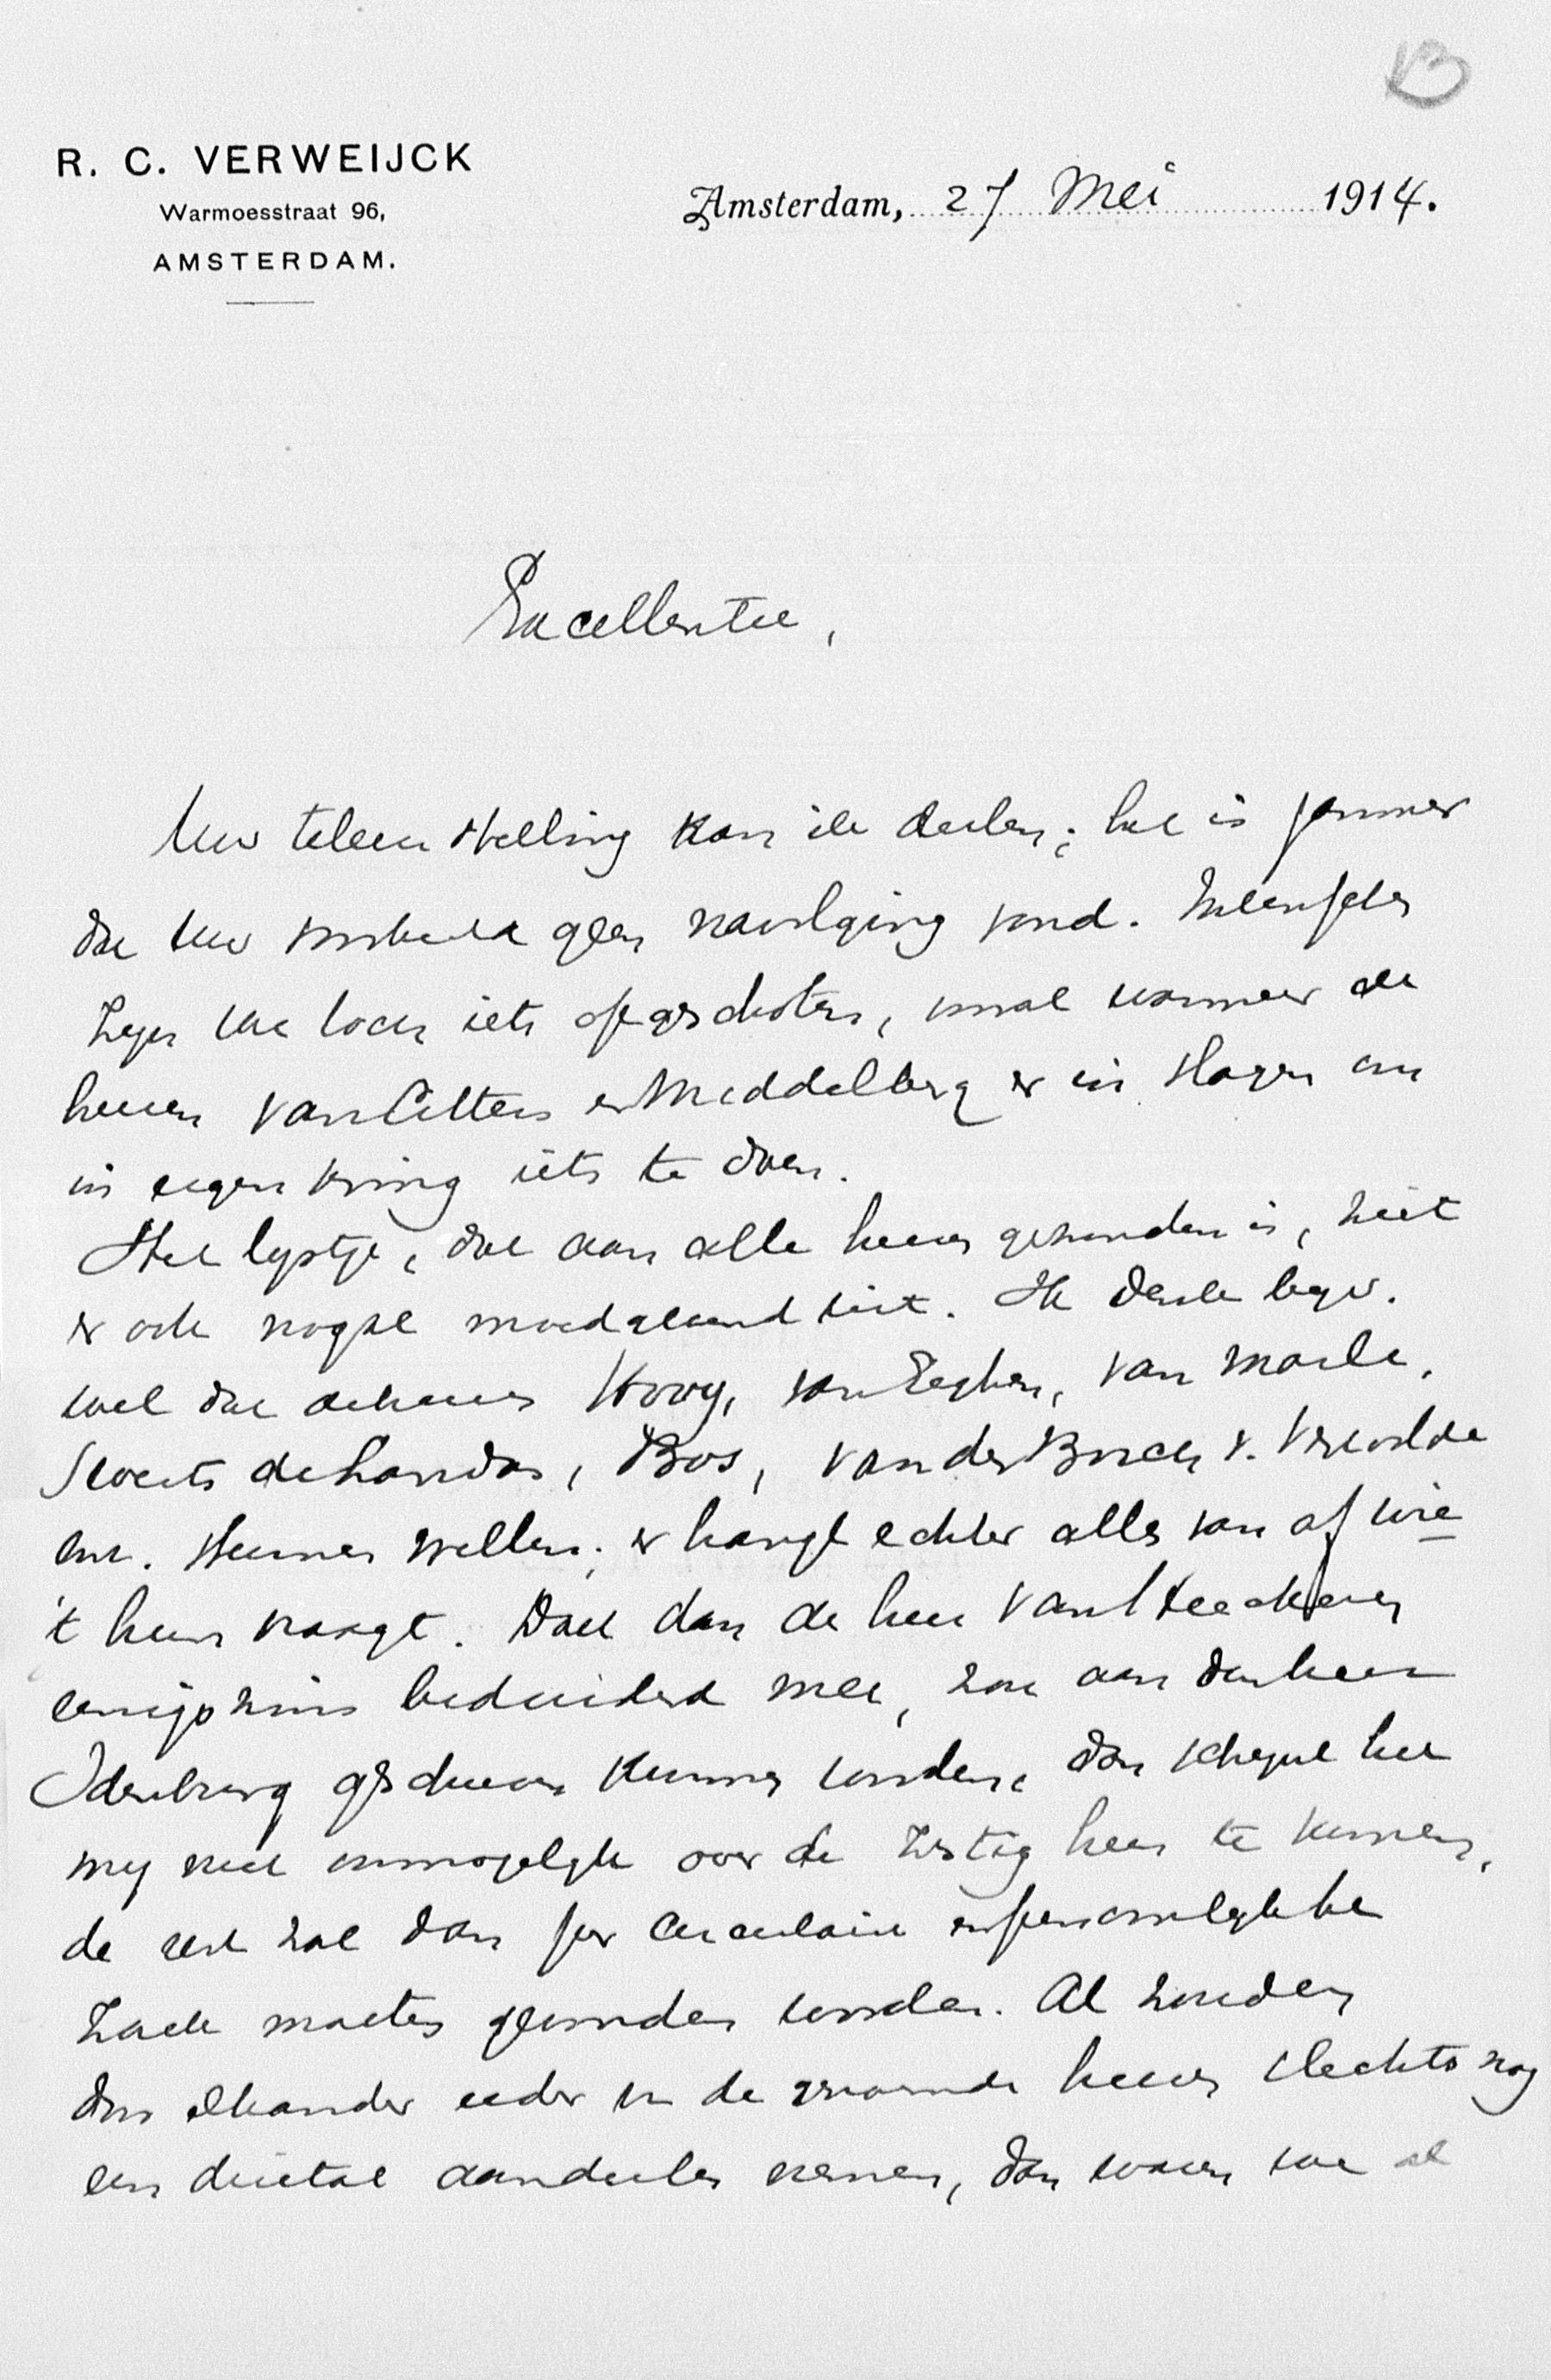 R. C. VERWEIJCK
Warmoesstraat 96,
AMSTERDAM.
Amsterdam, 27 Mei 1914.
Excellentie,
Uw teleurstelling kan ik deelen; het is jammer
dat Uw voorbeeld geen navolging vond. Intusschen
zijn we toch iets opgeschoten, vooral wanneer de
heeren van Citters en Middelberg er in slagen om
in eigen kring iets te doen.
Het lijstje, dat aan alle heeren gezonden is, ziet
er ook nogal moedgevend uit. Ik denk bijv.
wel dat de heeren Hovy, van Eeghen, van Marle,
Sweerts de Landas, Bos, van der Borch v. Verwolde
enz. steunen willen; er hangt echter alles van af wie
't hun vraagt. Doet dan de heer van Heeckeren
eenigszins beduidend mee, zou aan den heer
Idenburg geschreven kunnen worden, dan schijnt het
mij niet onmogelijk over de zestig heen te komen,
de rest zal dan per circulaire en persoonlijk be
zoek moeten gevonden worden. Al zouden
dan elkander ieder van de genoemde heeren slechts nog
een drietal aandeelen nemen, dan waren we al